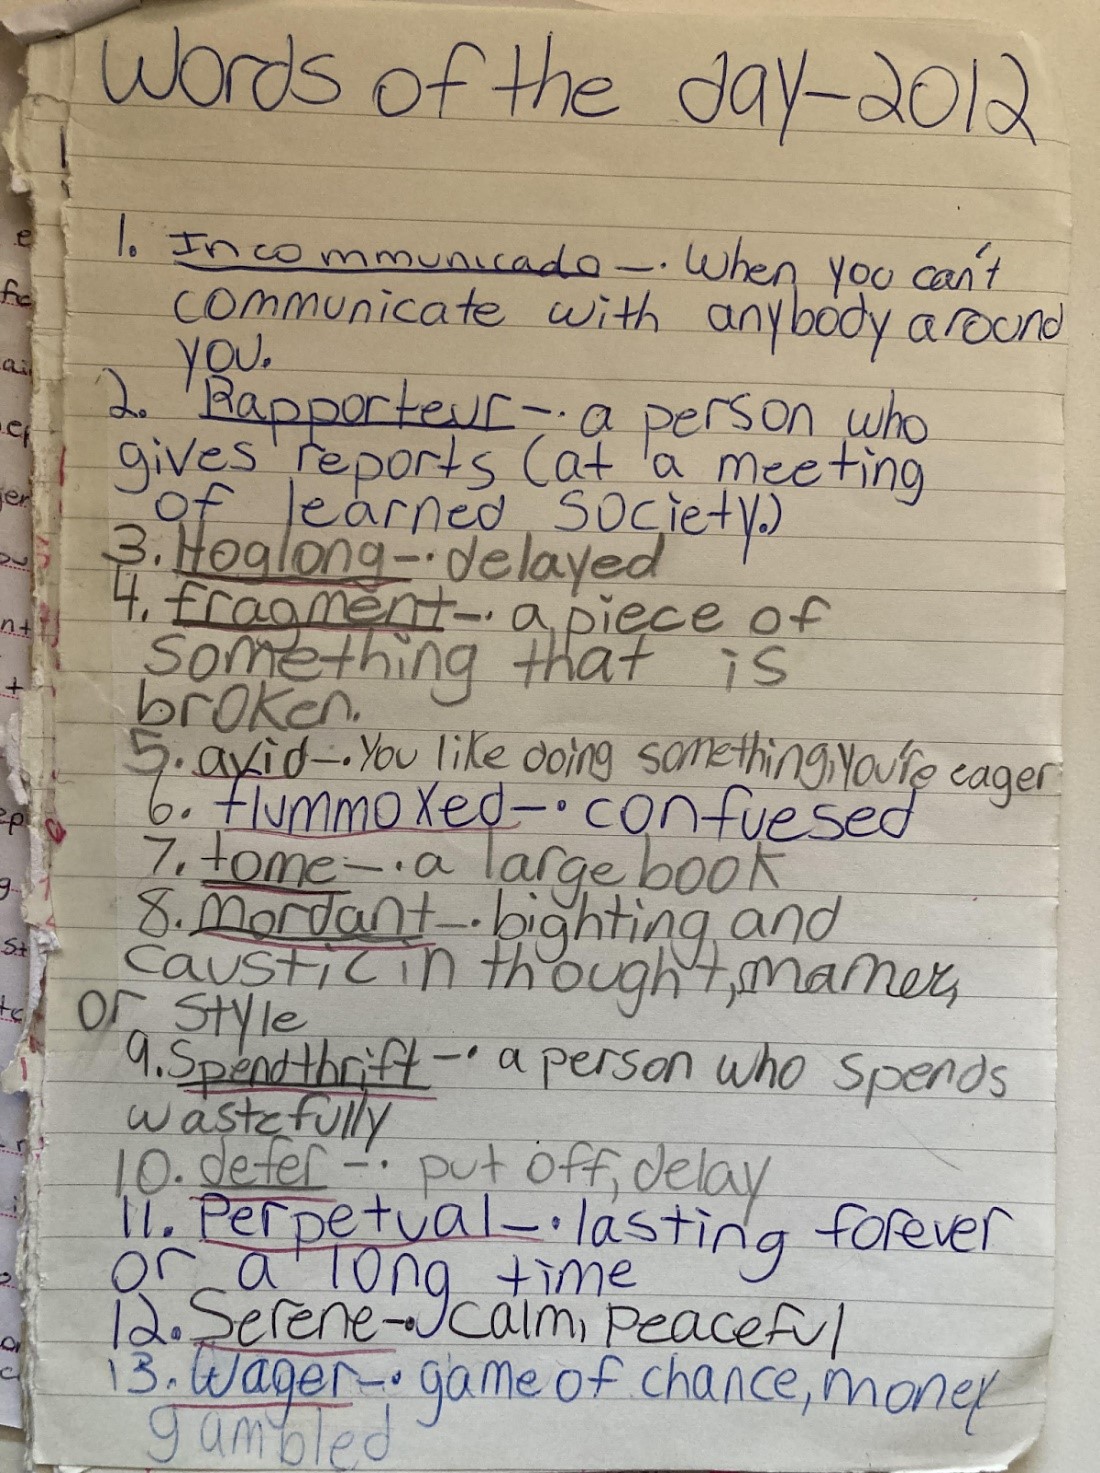 Words of the day-2012
1. Incommunicado -. When you can't
communicate with anybody around
you.
2. Rapporteur -. a person who
gives reports (at a meeting
of learned society.)
3. Hoglong -. delayed
4. fragment -. a piece of
something that is
broken.
5. avid -. You like doing something, You're eager
6. flummoxed -. confuesed
7. tome -. a large book
8. Mordant -. bighting and
caustic in thought, manner,
or style
9. Spendthrift -. a person who spends
wastefully
10. defer -. put off, delay
11. Perpetual -. lasting forever
or a long time
12. Serene -. Calm, Peaceful
13. Wager -. game of chance, money
gambled